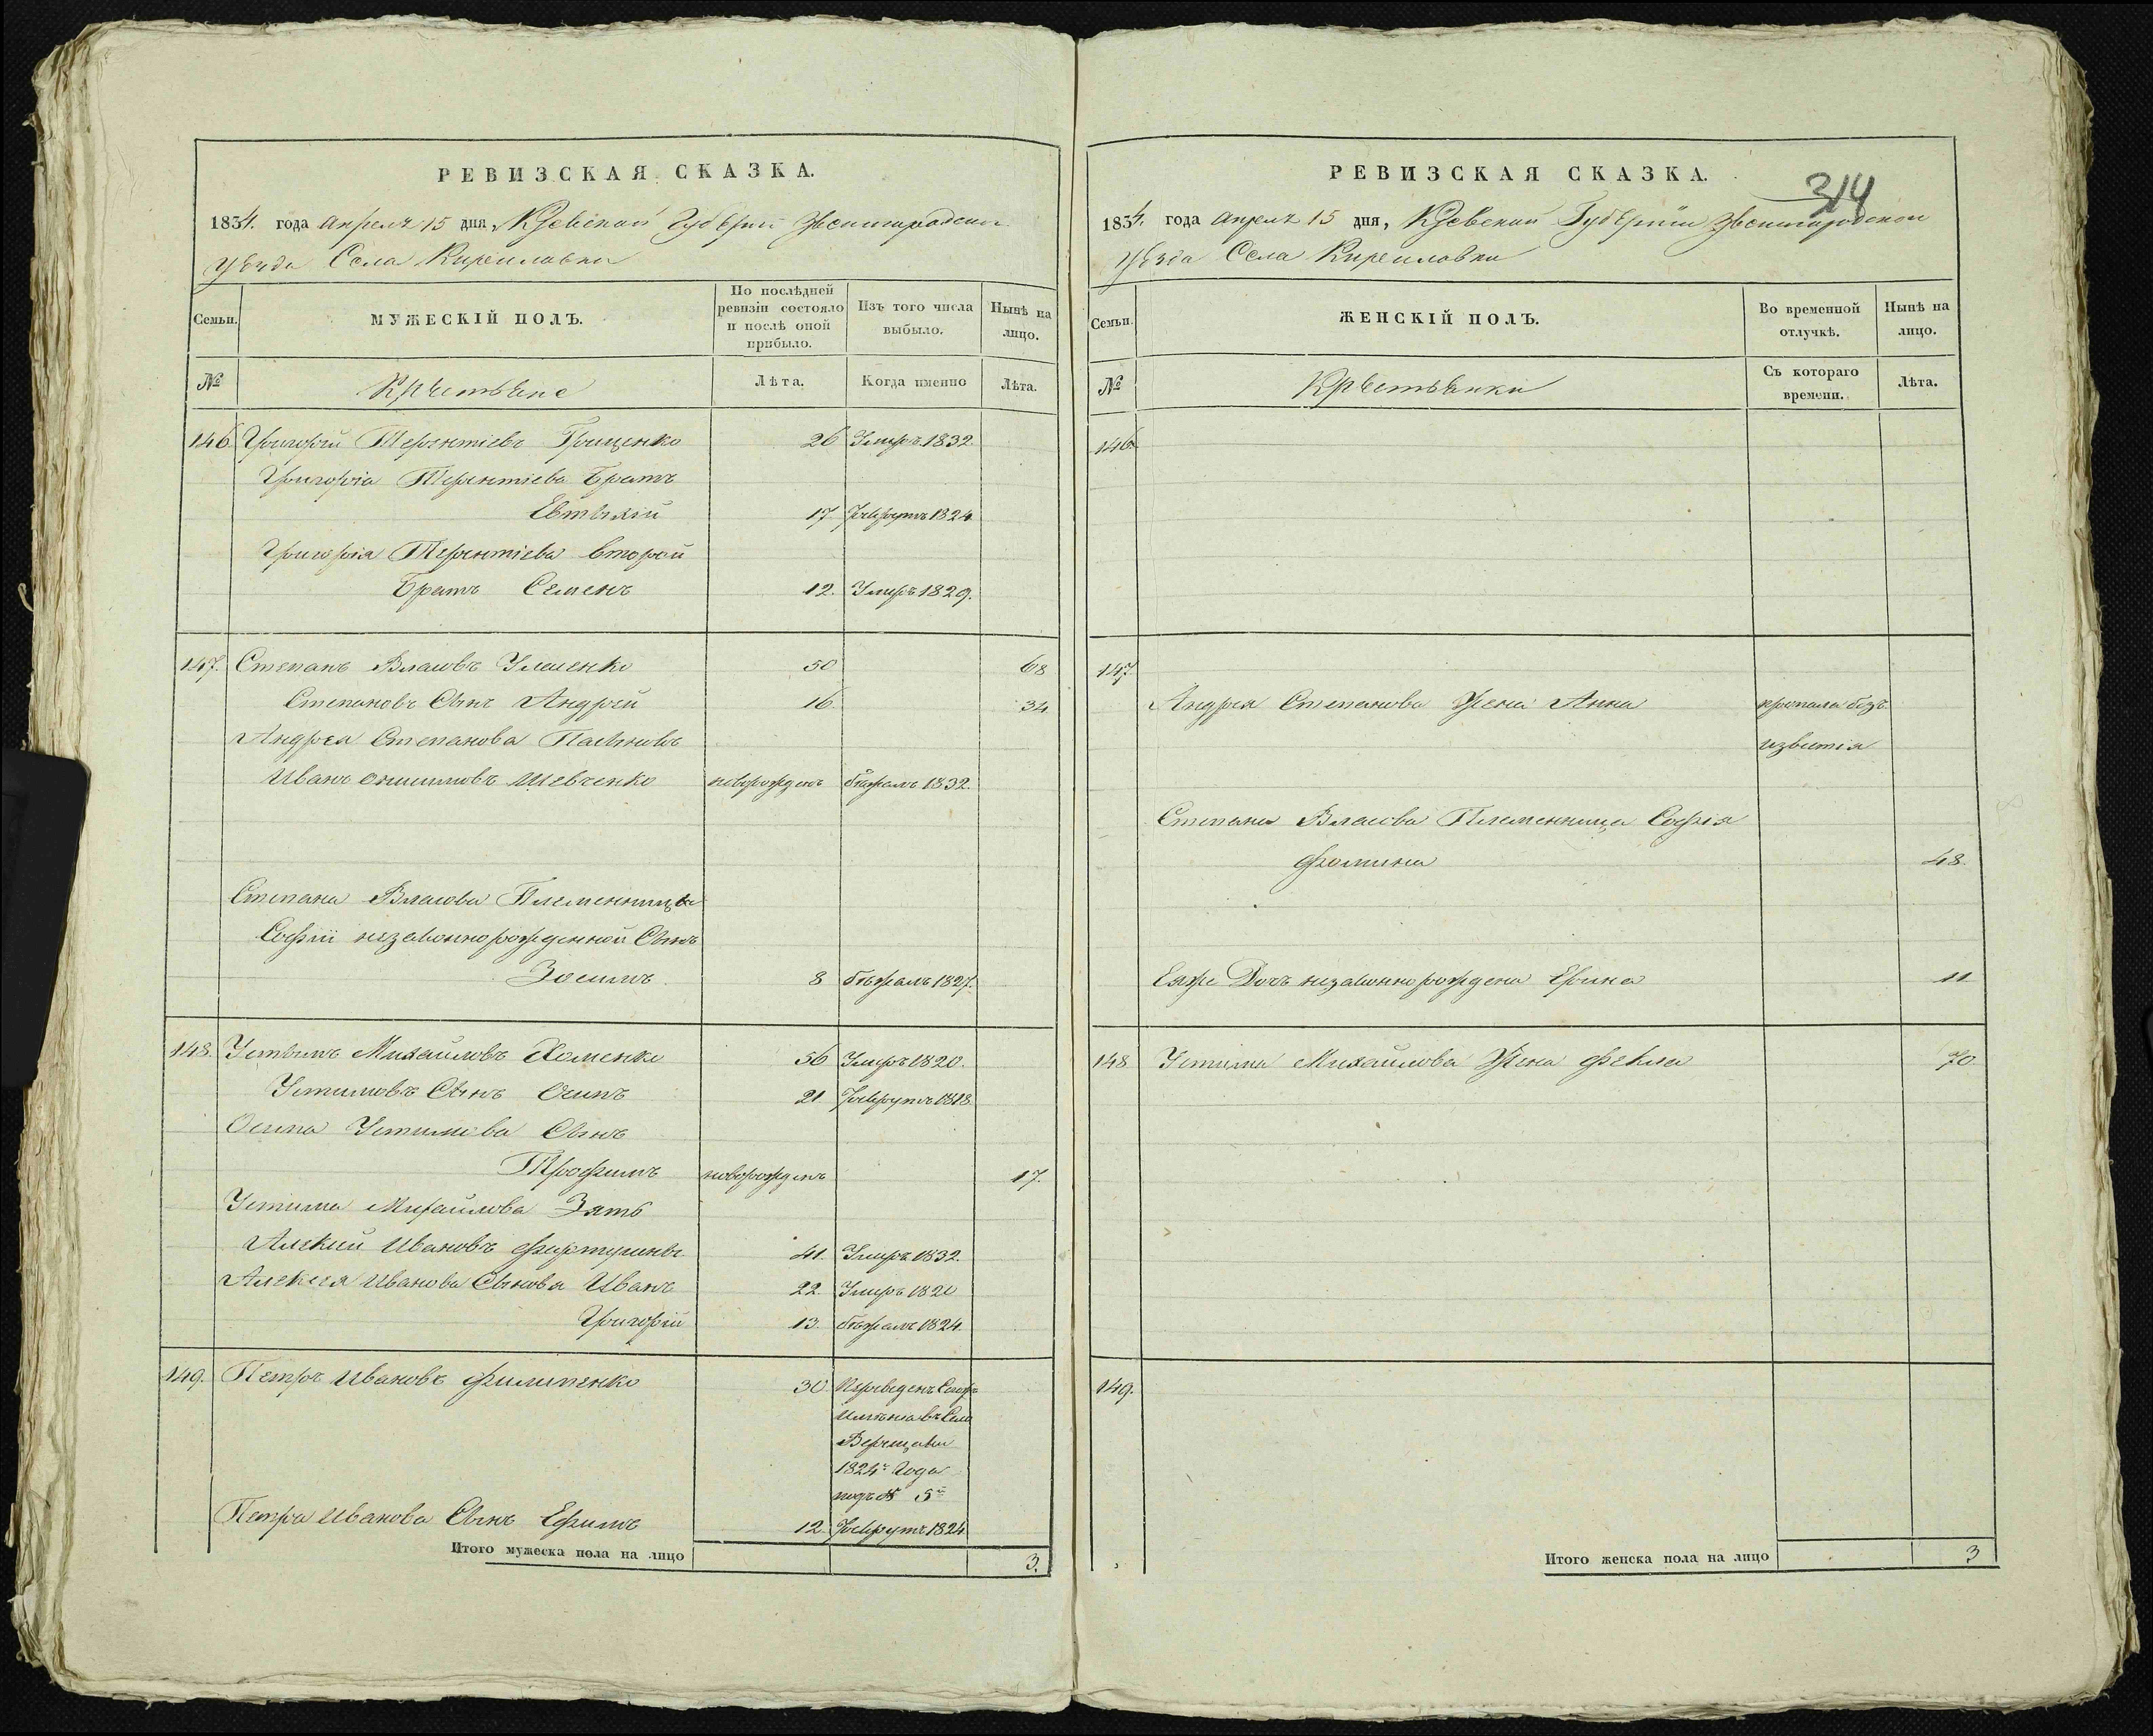 РЕВИЗСКАЯ СКАЗКА.
1834. года апреля 15 дня, Кіевской Губерніи Звенигородскаго
уѣзда Села Кириловки
Семьи.
МУЖЕСКІЙ ПОЛЪ.
По послѣдней ревизіи состояло и послѣ оной прибыло.
Изъ того числа выбыло.
Нынѣ на лицо.
№
Крѣстьяне
Лѣта.
Когда именно
Лѣта.
146. Григорій Терентіевъ Грищенко 26 Умеръ 1832.
Григорія Терентіева Братъ
Евтихій 17 Рекрутъ 1824
Григорія Терентіева второй
Братъ Семенъ 12. Умеръ 1829.
147. Степанъ Власовъ 50 68
Степановъ Сынъ Андрей 16. 34
Андрея Степанова Пасынокъ
Иванъ Онисимовъ Шевченко новорожденъ бѣжалъ 1832.
Степана Власова Племенницы
Софіи незаконнорожденной Сынъ
Зосимъ 8 бѣжалъ 1827.
148. Устимъ Михайловъ Хоменко 56 Умеръ 1820.
Устимовъ Сынъ Осипъ 21. Рекрутъ 1818.
Осипа Устимова Сынъ
Трофимъ новорожденъ 17.
Устима Михайлова Зять
Алексей Ивановъ 41. Умеръ 1832.
Алексея Иванова Сыновя Иванъ 22. Умеръ 1820
Григорій 13. бѣжалъ 1824.
149. Петръ Ивановъ Филипенко 30. Переведенъ
имѣнія въ Село
1824г Года
подъ № 5м
Петра Иванова Сынъ Ефимъ 12. Рекрутъ 1824
Итого мужеска пола на лицо 3.
РЕВИЗСКАЯ СКАЗКА.
314
1834. года апреля 15 дня, Кіевской Губерніи Звенигородскаго
уѣзда Села Кириловки
Семьи.
ЖЕНСКІЙ ПОЛЪ.
Во временной отлучкѣ.
Нынѣ на лицо.
№
Крѣстьянки
Съ котораго времени.
Лѣта.
146.
147.
Андрея Степанова Жена Анна пропала безъ
извѣстія
Степана Власова Племенница Софія
Фомина 48.
Еяже Дочь незаконнорождена Ирина 11
148 Устима Михайлова Жена Фекла 70.
149.
Итого женска пола на лицо 3